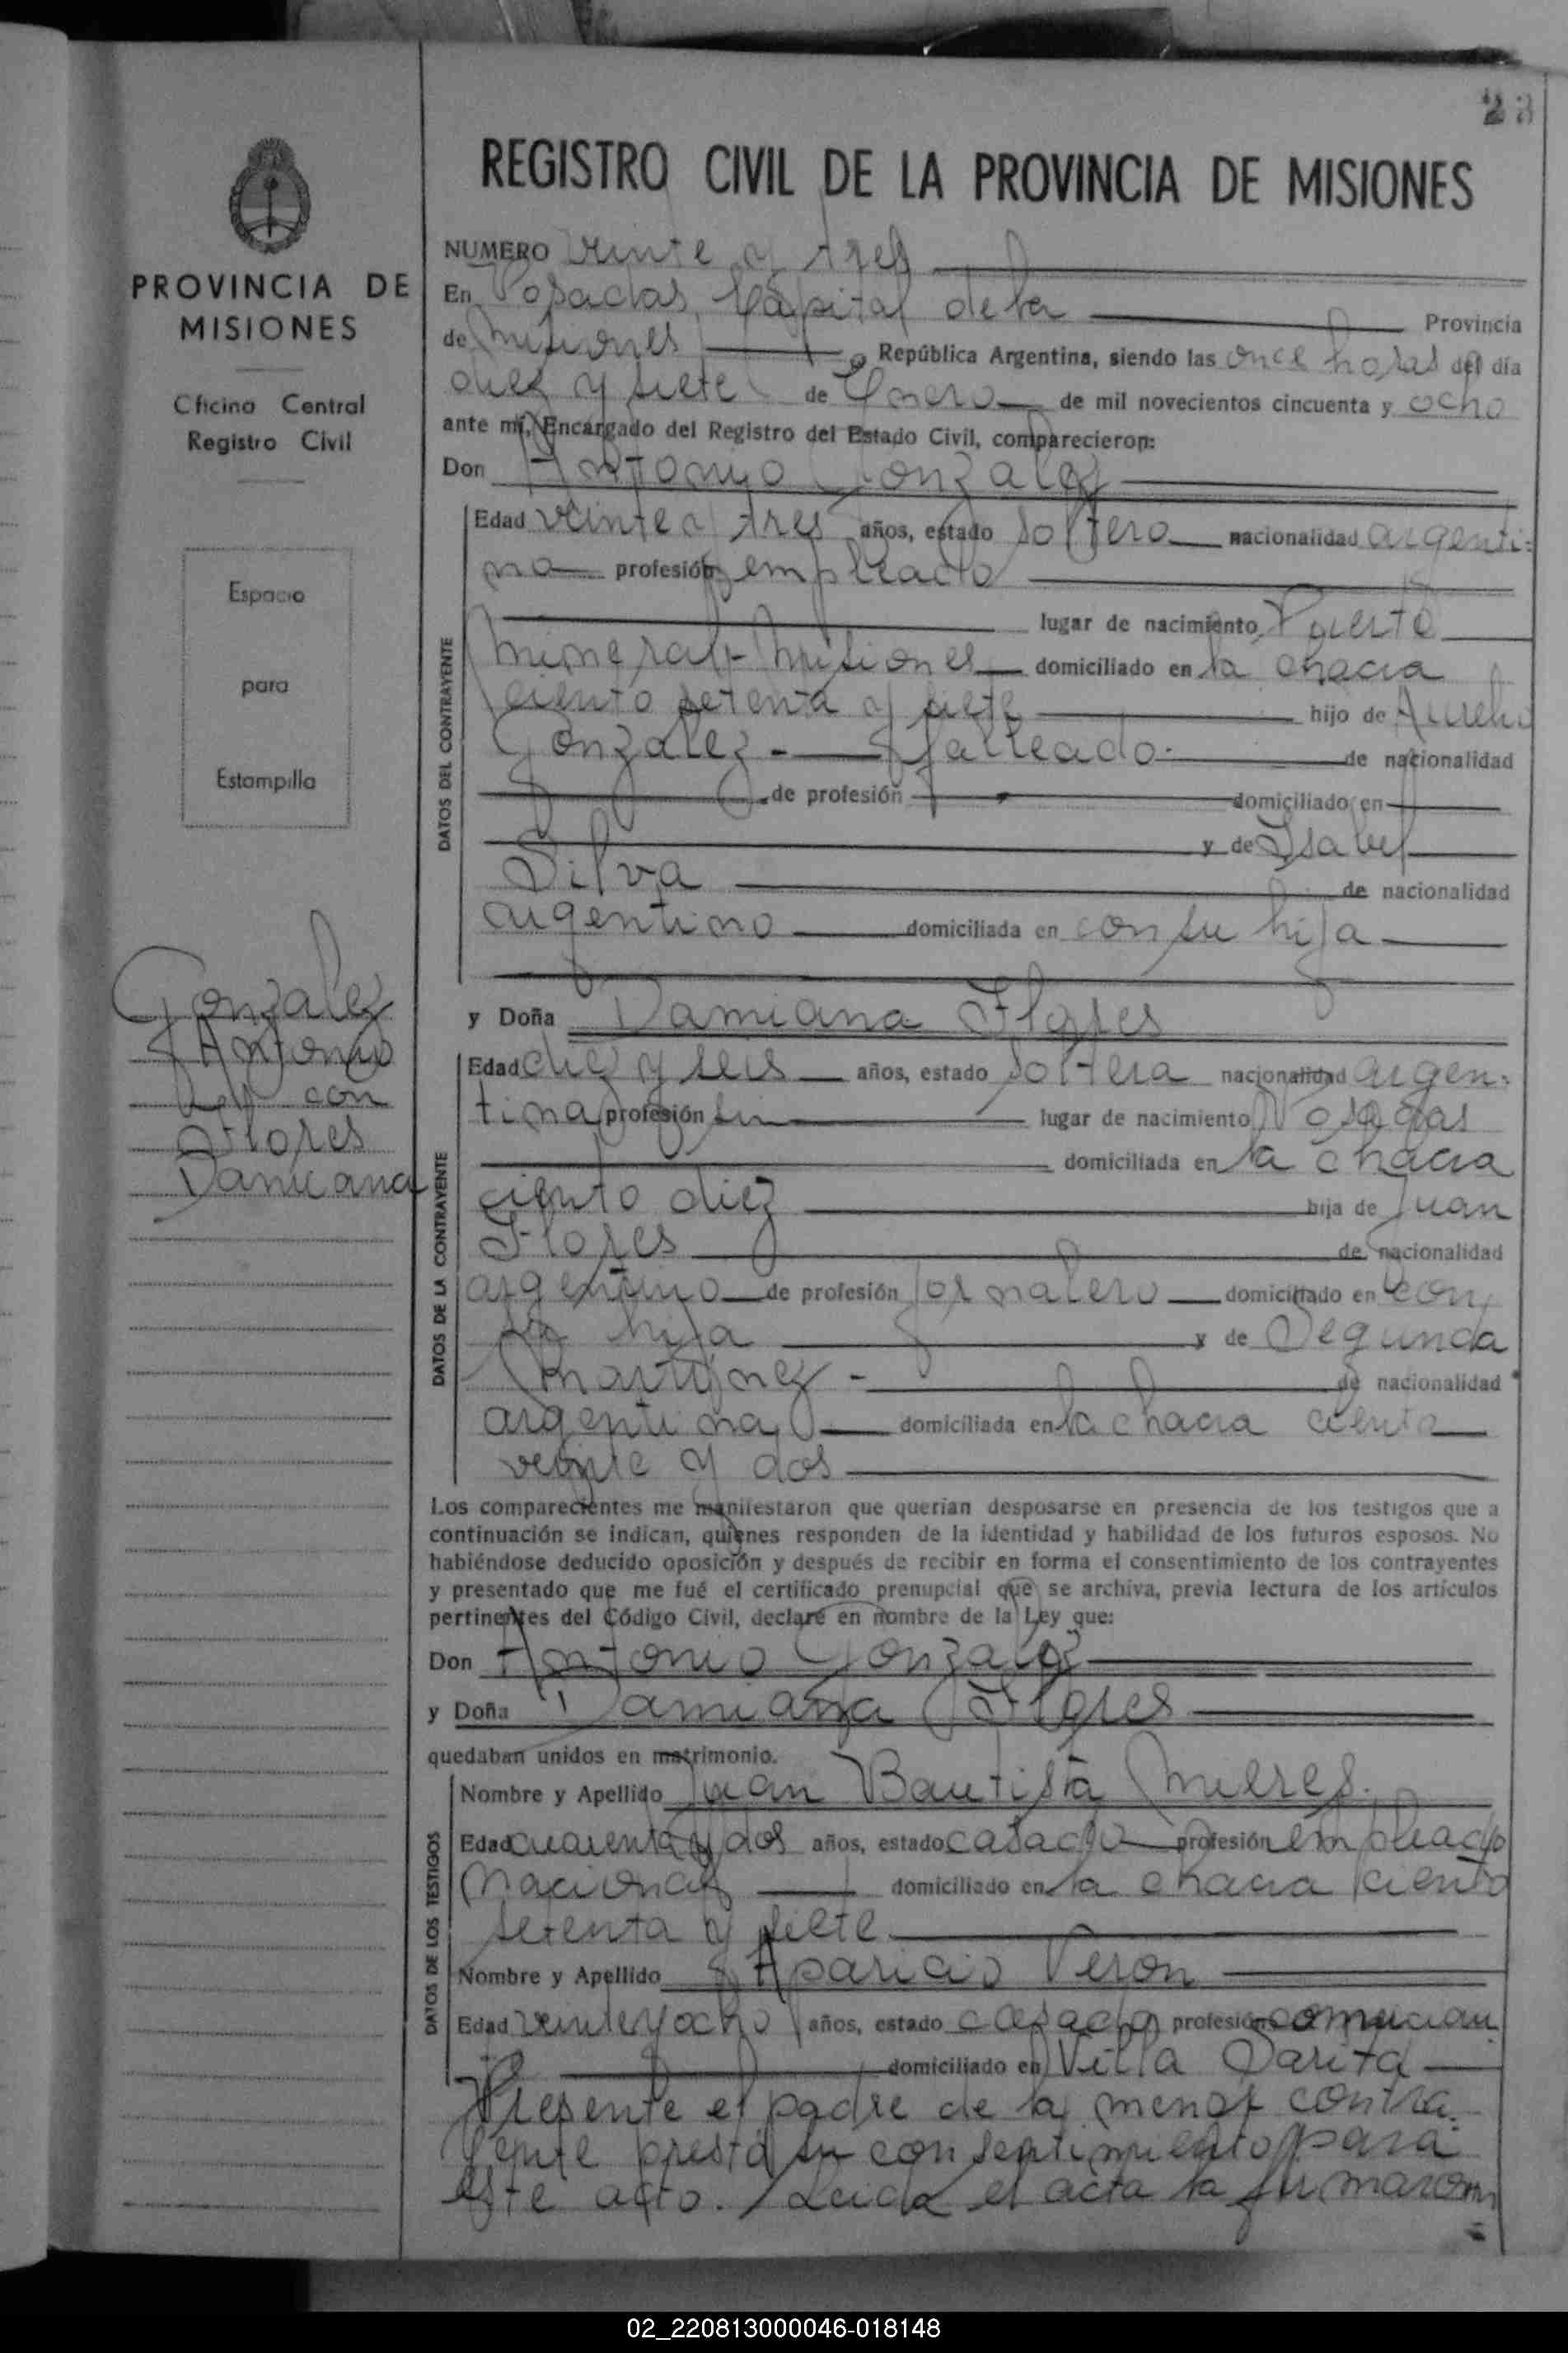 23
REGISTRO CIVIL DE LA PROVINCIA DE MISIONES
PROVINCIA DE
MISIONES
Oficina Central
Registro Civil
Espacio
para
Estampilla
Gonzalez
Antonio
con
Flores
Damiana
NUMERO veinte y tres
En Posadas, Capital de la Provincia
de Misiones República Argentina, siendo las once horas del día
diez y siete de Enero de mil novecientos cincuenta y ocho
ante mí, Encargado del Registro del Estado Civil, comparecieron:
Don Antonio Gonzalez
DATOS DEL CONTRAYENTE
Edad veinte y tres años, estado soltero nacionalidad argenti-
no profesión empleado
lugar de nacimiento Puerto
Mineral - Misiones domiciliado en la chacra
ciento setenta y siete hijo de Aurelio
Gonzalez - falleado de nacionalidad
de profesión domiciliado en
y de Isabel
Silva de nacionalidad
argentino domiciliada en con su hija
y Doña Damiana Flores
DATOS DE LA CONTRAYENTE
Edad diez y seis años, estado soltera nacionalidad argen-
tina profesión sin lugar de nacimiento Posadas
domiciliada en la chacra
ciento diez hija de Juan
Flores de nacionalidad
argentino de profesión jornalero domiciliado en con
su hija y de Segunda
Martinez - de nacionalidad
argentina domiciliada en la chacra ciento
veinte y dos
Los comparecientes me manifestaron que querían desposarse en presencia de los testigos que a
continuación se indican, quienes responden de la identidad y habilidad de los futuros esposos. No
habiéndose deducido oposición y después de recibir en forma el consentimiento de los contrayentes
y presentado que me fué el certificado prenupcial que se archiva, previa lectura de los artículos
pertinentes del Código Civil, declaré en nombre de la Ley que:
Don Antonio Gonzalez
y Doña Damiana Flores
quedaban unidos en matrimonio.
DATOS DE LOS TESTIGOS
Nombre y Apellido Juan Bautista Mieres.
Edad cuarenta y dos años, estado casado profesión empleado
Nacional domiciliado en la chacra ciento
setenta y siete
Nombre y Apellido Aparicio Veron
Edad veinte y ocho años, estado casado profesión comercian
te domiciliado en Villa Sarita
Presente el padre de la menor contra-
yente presta su consentimiento para
este acto. Leida el acta la firmaron
02_220813000046-018148